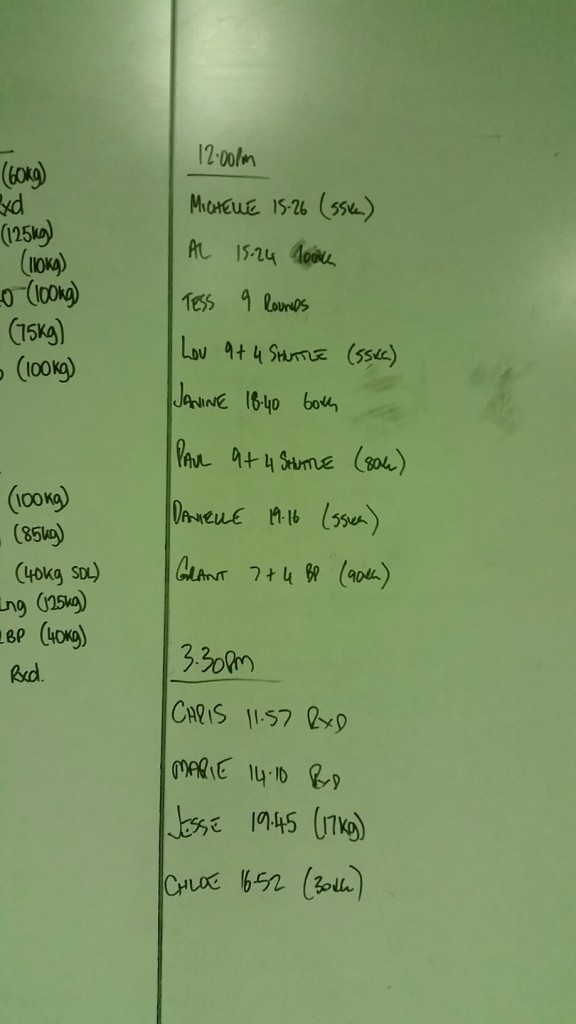 (60kg)
Rxd
(125kg)
(110kg)
(100kg)
(75kg)
(100kg)
(100kg)
(85kg)
(40kg SDL)
(125kg)
BP (40kg)
Rxd.
12.00pm
MICHELLE 15.26 (55KG)
AL 15.24 100KG
TESS 9 ROUNDS
LOU 9+4 SHUTTLE (55KG)
JANINE 18.40 60KG
PAUL 9+4 SHUTTLE (80KG)
DANIELLE 19.16 (55KG)
GRANT 7+4 BP (90KG)
3.30pm
CHRIS 11.57 RXD
MARIE 14.10 RXD
JESSE 19.45 (17kg)
CHLOE 16.52 (30KG)